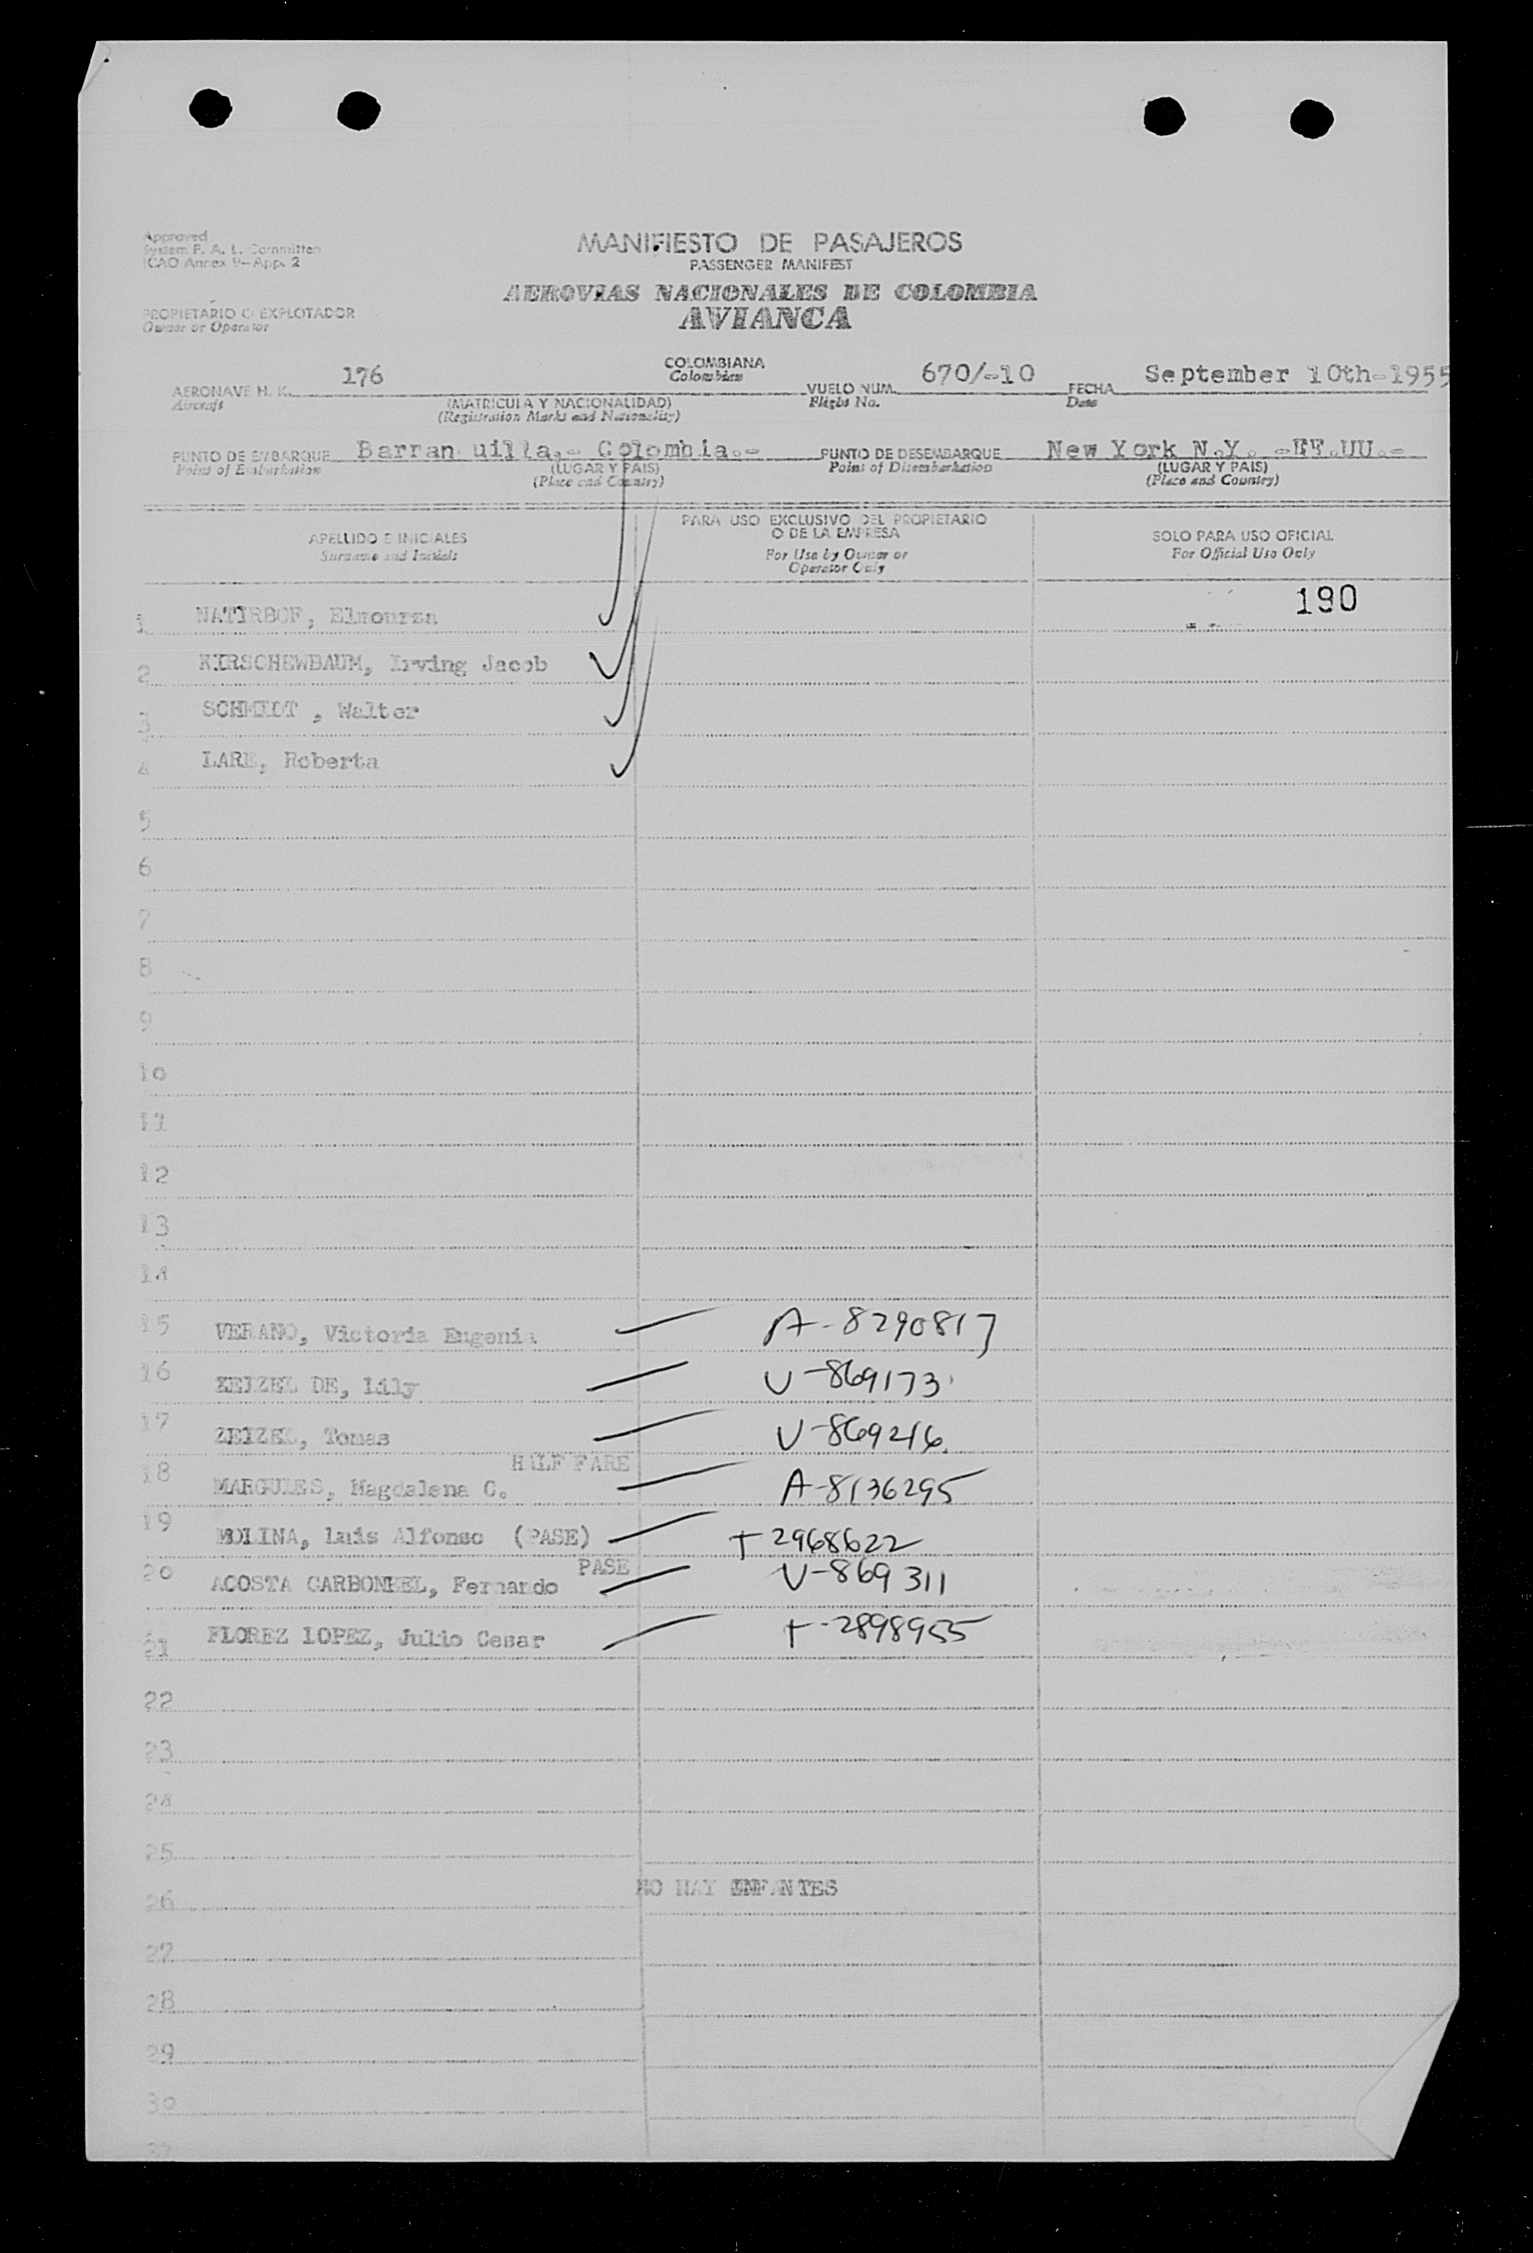 Approved
System F. A. L. Committee
ICAO Annex 9-App. 2
MANIFIESTO DE PASAJEROS
PASSENGER MANIFEST
AEROVIAS NACIONALES DE COLOMBIA
AVIANCA
PROPIETARIO O EXPLOTADOR
Owner or Operator
AERONAVE H. K. 176
Aircraft
COLOMBIANA
Colombian
(MATRICULA Y NACIONALIDAD)
(Registration Marks and Nationality)
VUELO NUM. 670/-10
Flight No.
FECHA September 10th-1955
Date
PUNTO DE EMBARQUE Barran uilla.- Colombia.-
Point of Embarkation
(LUGAR Y PAIS)
(Place and Country)
PUNTO DE DESEMBARQUE New York N.Y. -EE.UU.-
Point of Disembarkation
(LUGAR Y PAIS)
(Place and Country)
APELLIDO E INICIALES
Surname and Initials
PARA USO EXCLUSIVO DEL PROPIETARIO
O DE LA EMPRESA
For Use by Owner or
Operator Only
SOLO PARA USO OFICIAL
For Official Use Only
190
1 NATIRBOF, Elmourza
2 KIRSCHEWBAUM, Irving Jacob
3 SCHMIDT , Walter
4 LARE, Roberta
5
6
7
8
9
10
11
12
13
14
15 VERANO, Victoria Eugenia A-8290817
16 ZEIZEL DE, Lily V-869173
17 ZEIZEL, Tomas V-869216
HALF FARE
18 MARGULES, Magdalena C. A-8136295
19 MOLINA, Luis Alfonso (PASE) T 2968622
PASE
20 ACOSTA CARBONELL, Fernando V-869311
21 FLOREZ LOPEZ, Julio Cesar T-2898955
22
23
24
25
26 NO HAY INFANTES
27
28
29
30